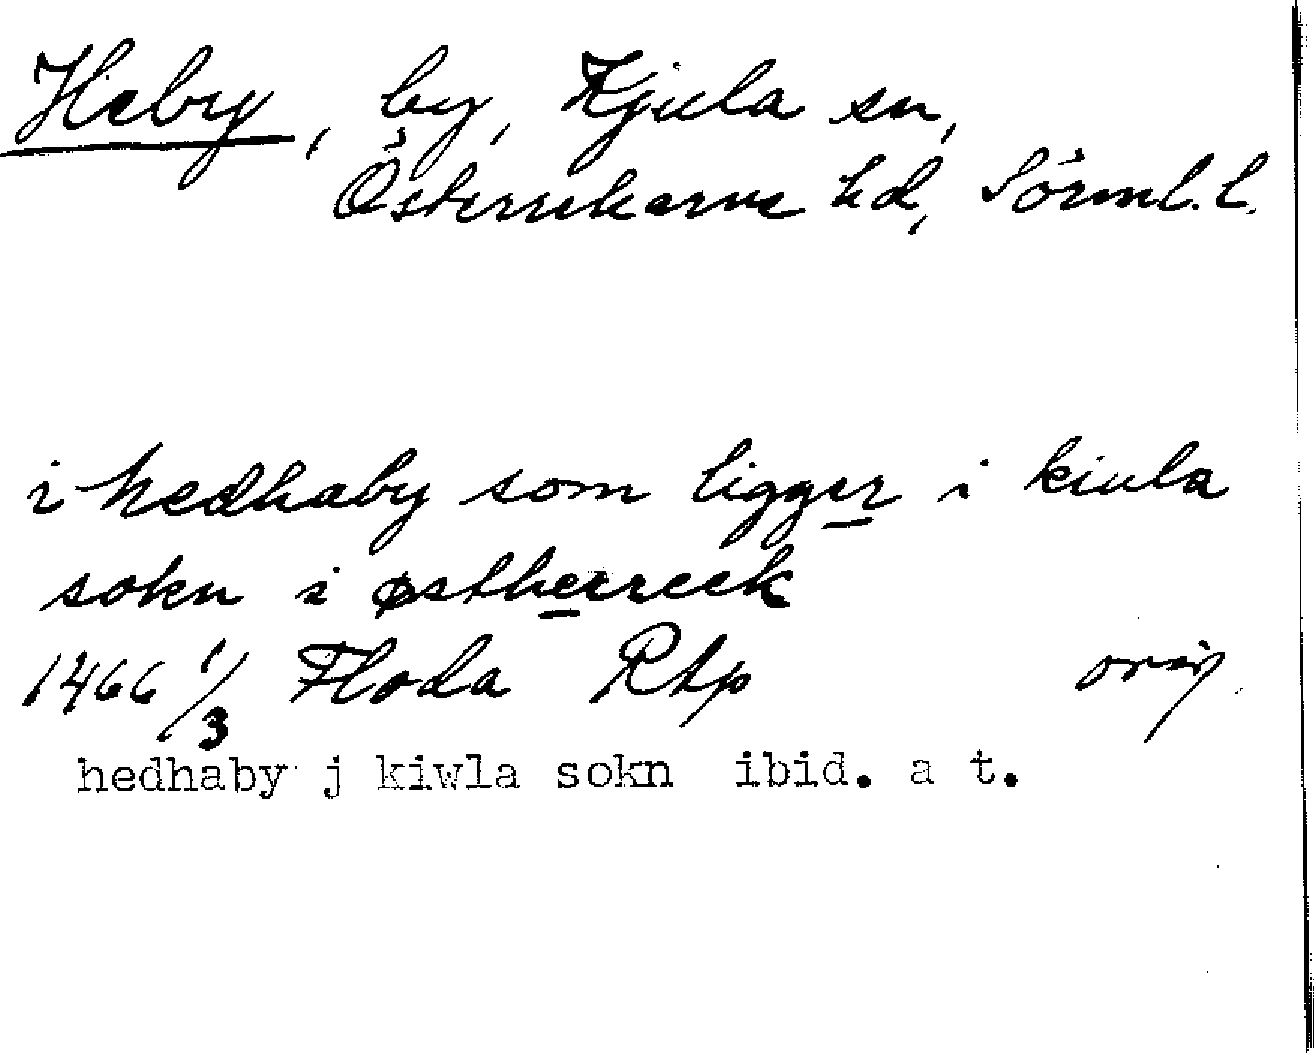 Heby, by, Kjula sn,
Österrekarne hd, Sörml. l.
i hedhaby som ligger i kiula
sokn i østherreek
1466 1/3 Floda Rtp orig.
hedhaby j kiwla sokn ibid. a t.